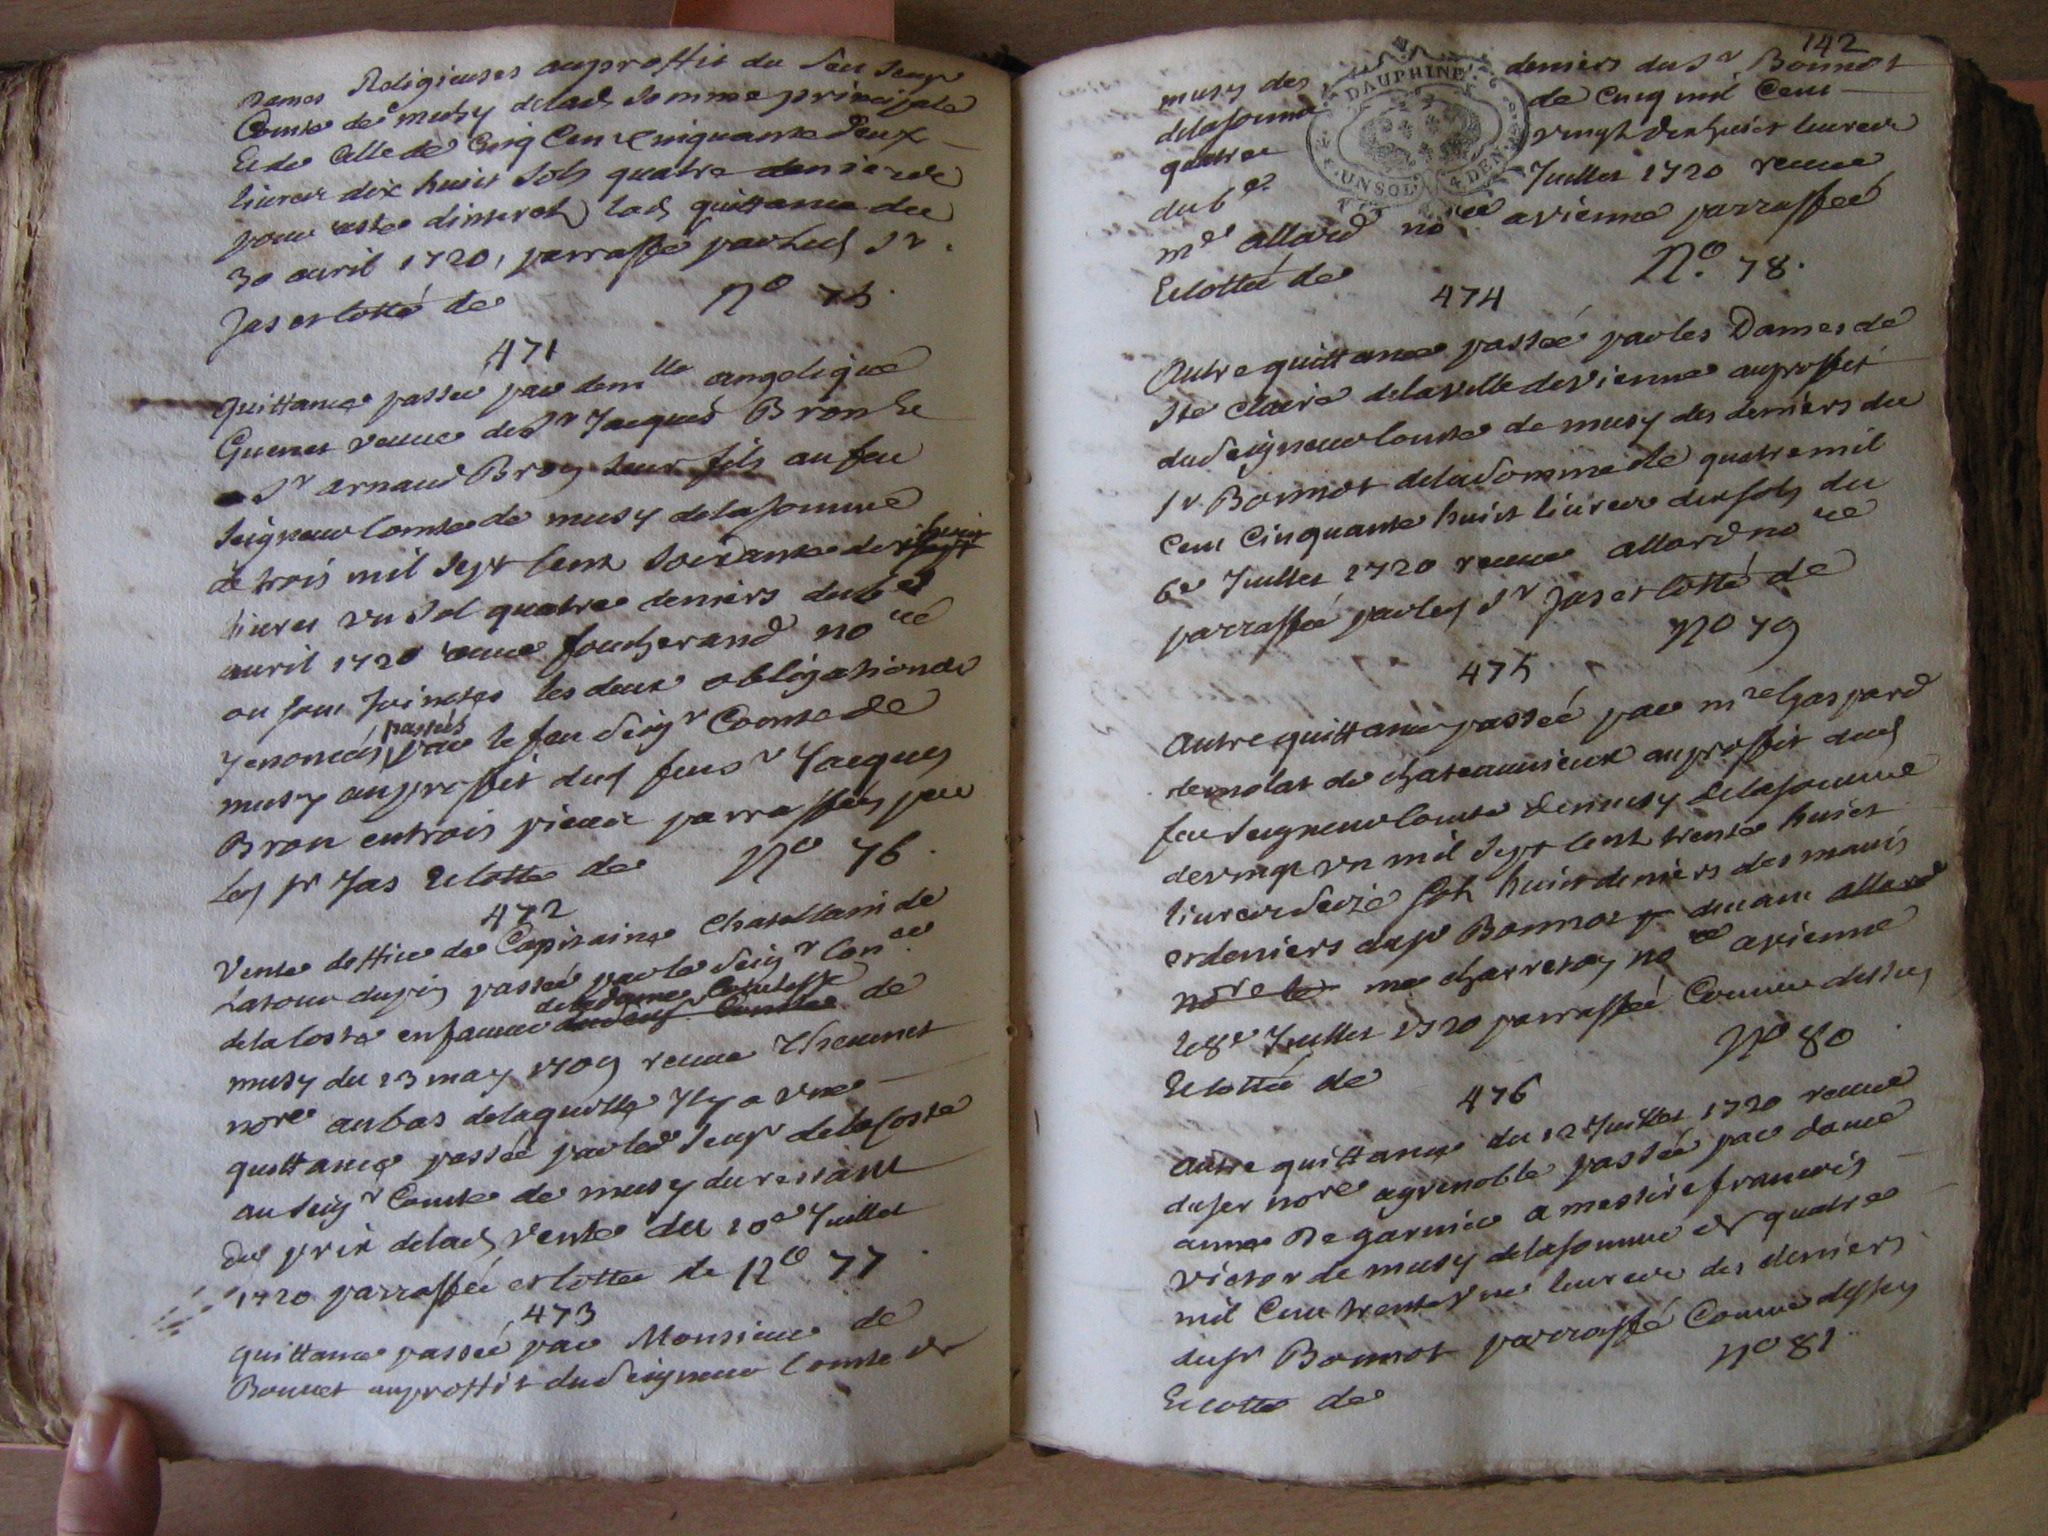 Dames Religieuses au proffit du feu Seigr
Comte de musy de lad somme principale
Et de Celle de Cinq Cent Cinquante deux
livres dix huit sols quatre deniers
pour reste dinterets lad quittance du
30 avril 1720, parraffé par led Sr
Jas et cotté de No 75.
471
quittance passée par demlle angelique
Guenet veuve de Sr Jacques Bron Et
Sr arnaud Bron leur fils au feu
Seigneur Comte de musy de la somme
de trois mil sept Cent soixante dix huit
livres un sol quatre deniers du 6e
avril 1720 receue foucherand nore
ou sont Jointes les deux obligations
y enoncées passées par le feu Seigr Comte de
musy au proffit dud feu sr Jacques
Bron en trois pieces parraffées par
led sr Jas Et cotté de No 76.
472
Vente doffice de Capitaine Chatellain de
Latour dupin passée par le Seigr Coner
de la Coste en faveur de la dame Comtesse de
musy du 23 may 1709 receue
nore au bas de laquelle Il y a une
quittance passée par led Seigr de la Coste
au Seigr Comte de musy du restant
du prix de lad vente du 20e Juillet
1720 parraffée et cottée de No 77.
473
quittance passée par Monsieur de
Bonnet au proffit du Seigneur Comte de
142
musy des deniers du Sr Bonnot
de la somme de Cinq mil Cent
quatre vingt dix huit livres
du 6e Juillet 1720 receue
me allard nore a vienne parraffée
Et cotté de No. 78.
DAUPHINE
UN SOL 4 DEN.
474
Autre quittance passée par les Dames de
Ste Claire de la ville de vienne au proffit
du Seigneur Comte de musy des deniers du
sr Bonnot de la somme de quatre mil
Cent Cinquante huit livres dix sols du
6e Juillet 1720 receue allard nore
parraffée par led Sr Jas et cotté de
No 79
475
Autre quittance passée par mre Gaspard
de molar de chateauvieux au proffit dud
feu Seigneur Comte de musy de la somme
de vingt un mil sept Cent trente huit
livres seize sols huit deniers des mains
et deniers du sr Bonnot devant allard
nore le me charretoy nore a vienne
le 8e Juillet 1720 parraffée Comme dessus
Et cottée de No 80.
476
Autre quittance du 12 Juillet 1720 receue
nore a grenoble passée par dame
anne De garnier a messire francois
victor de musy de la somme de quatre
mil Cent trente une livres des deniers
du sr Bonnot parraffé Comme dessus
Et cotté de No 81.